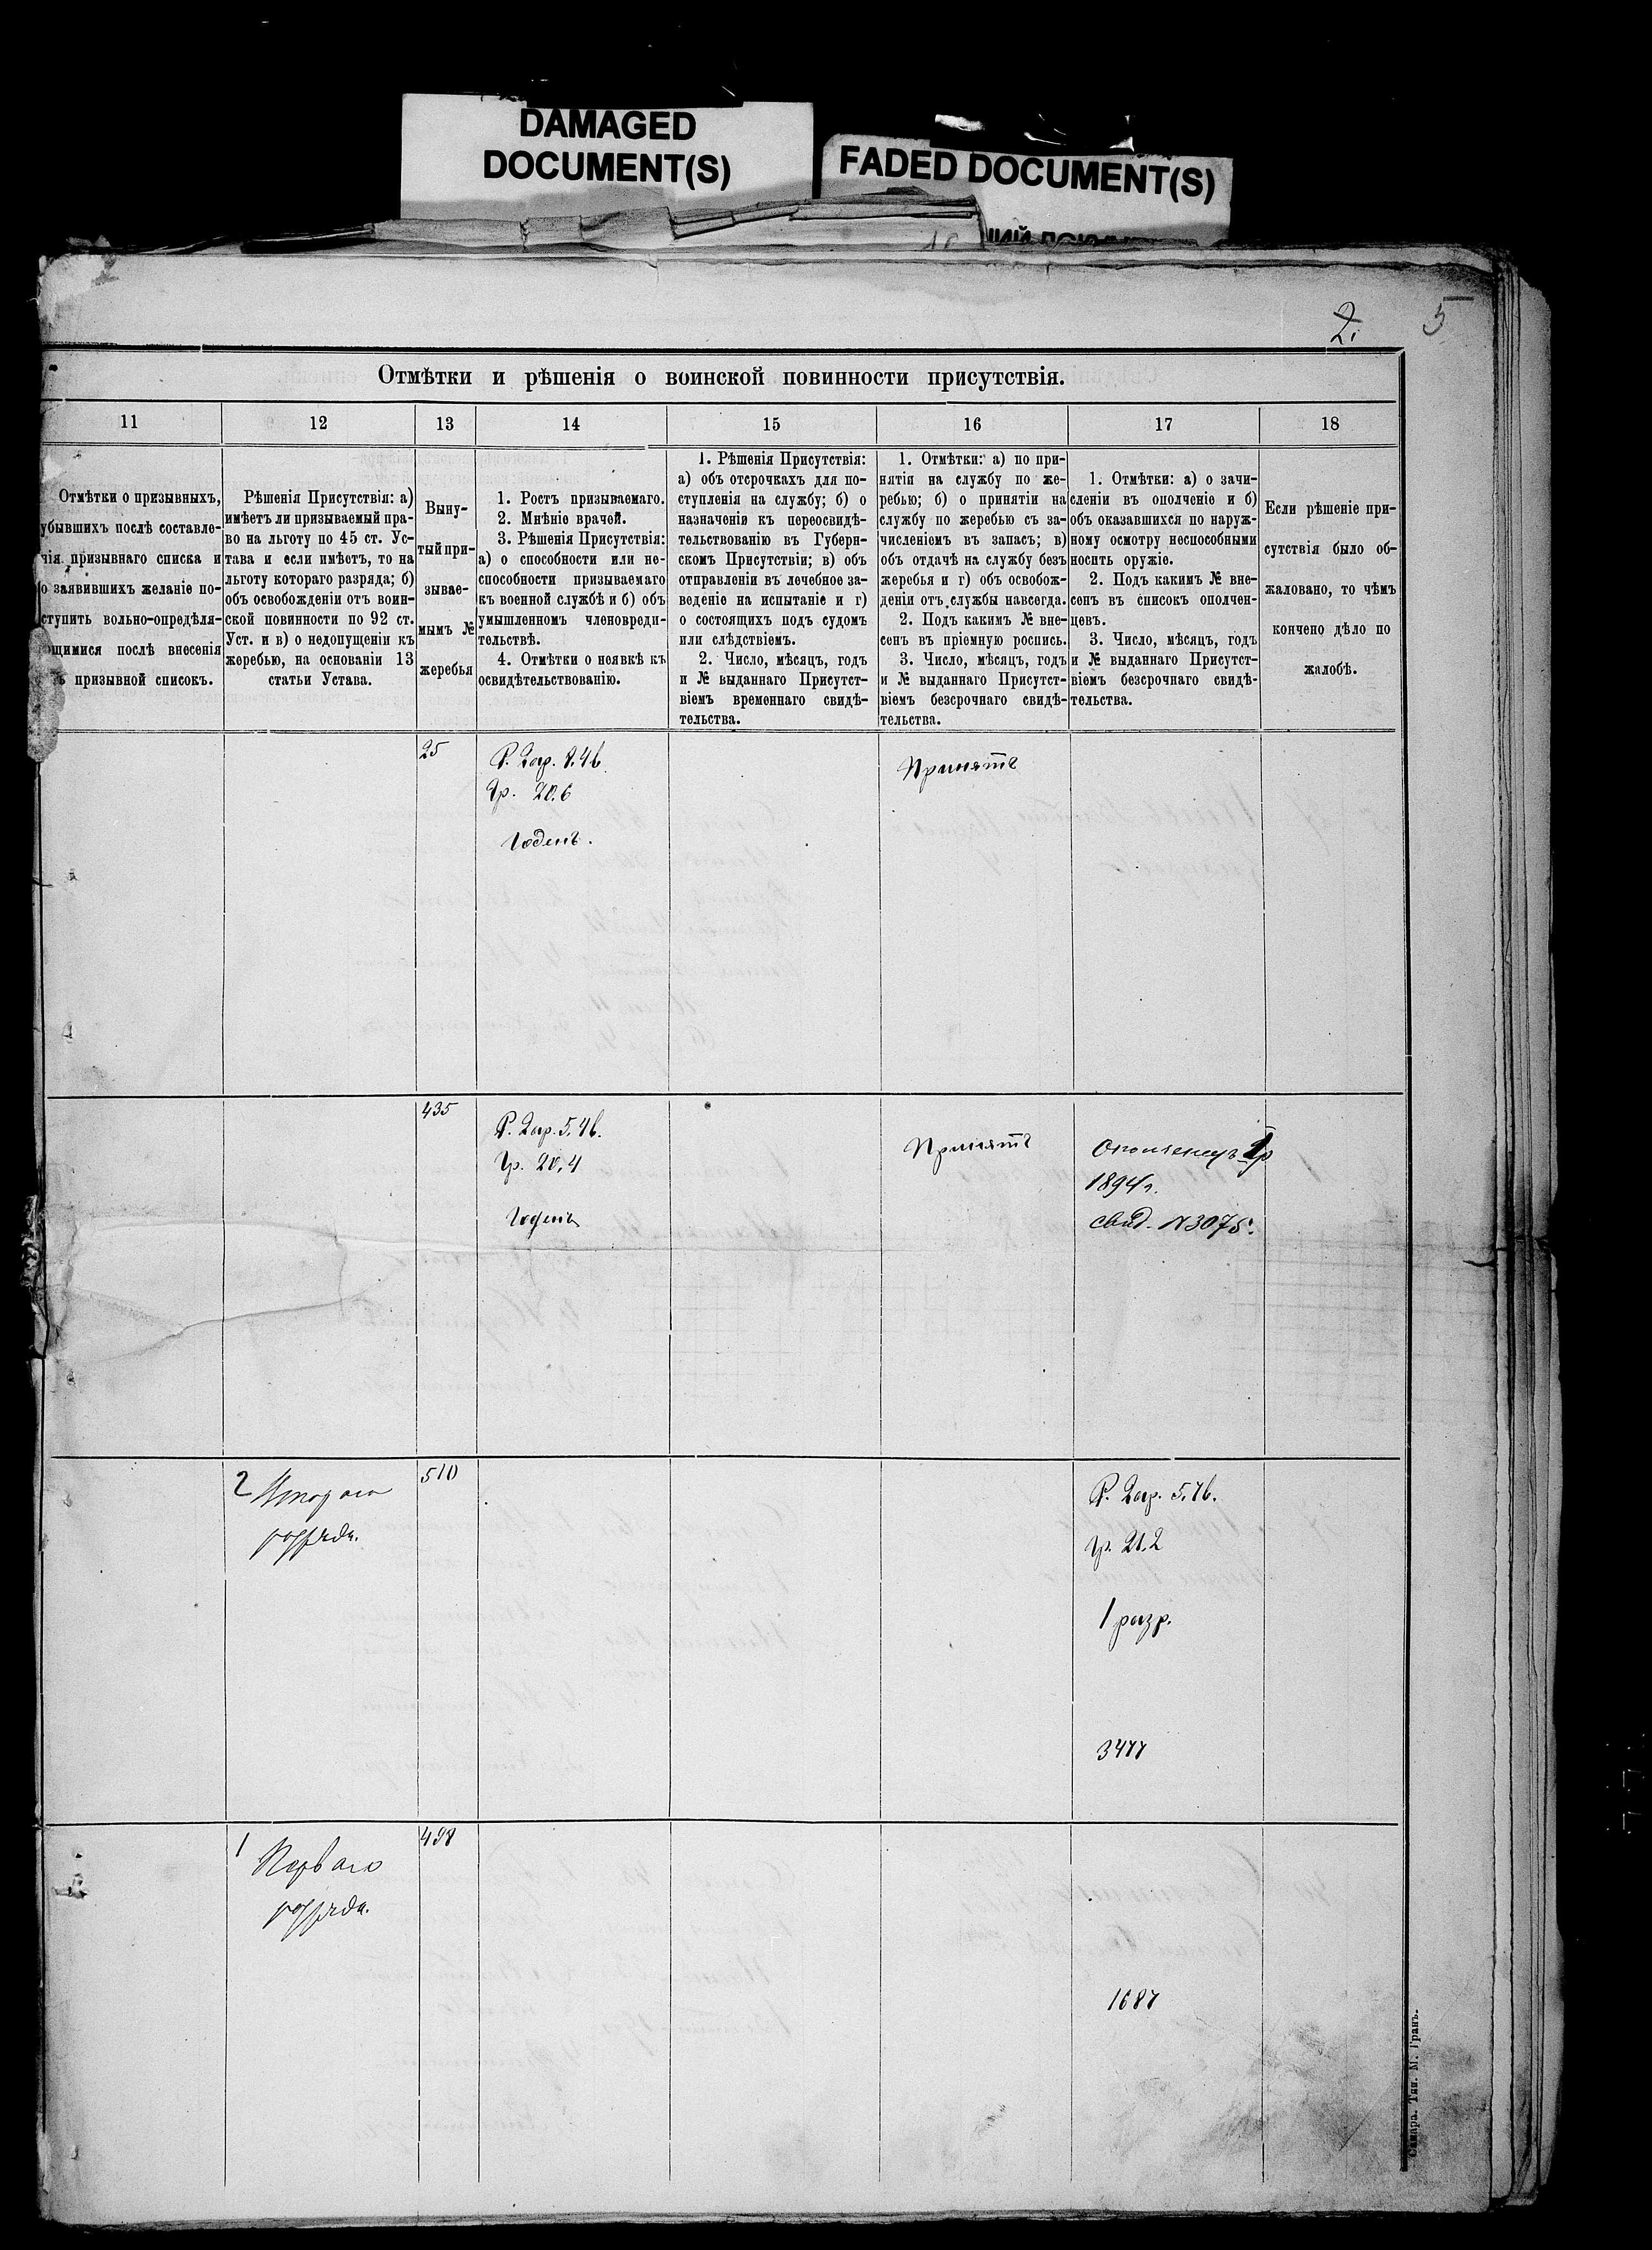 DAMAGED
DOCUMENT(S)
FADED DOCUMENT(S)
2.
5
Отмѣтки и рѣшенія о воинской повинности присутствія.
11
12
13
14
15
16
17
18
Отмѣтки о призывныхъ,
убывшихъ послѣ составле-
нія призывнаго списка и
о заявившихъ желаніе по-
ступить вольно-опредѣля-
ющимися послѣ внесенія
призывной списокъ.
Рѣшенія Присутствія: а)
имѣетъ ли призываемый пра-
во на льготу по 45 ст. Ус-
тава и если имѣетъ, то на
льготу котораго разряда; б)
объ освобожденіи отъ воин-
ской повинности по 92 ст.
Уст. и в) о недопущеніи къ
жеребью, на основаніи 13
статьи Устава.
Выну-
тый при-
зывае-
мымъ №
жеребья
1. Ростъ призываемаго.
2. Мнѣніе врачей.
3. Рѣшенія Присутствія:
а) о способности или не-
способности призываемаго
къ военной службѣ и б) объ
умышленномъ членовреди-
тельствѣ.
4. Отмѣтки о неявкѣ къ
освидѣтельствованію.
1. Рѣшенія Присутствія:
а) объ отсрочкахъ для по-
ступленія на службу; б) о
назначеніи къ переосвидѣ-
тельствованію въ Губерн-
скомъ Присутствіи; в) объ
отправленіи въ лечебное за-
веденіе на испытаніе и г)
о состоящихъ подъ судомъ
или слѣдствіемъ.
2. Число, мѣсяцъ, годъ
и № выданнаго Присутст-
віемъ временнаго свидѣ-
тельства.
1. Отмѣтки: а) по при-
нятія на службу по же-
ребью; б) о принятіи на
службу по жеребью съ за-
численіемъ въ запасъ; в)
объ отдачѣ на службу безъ
жеребья и г) объ освобож-
деніи отъ службы навсегда.
2. Подъ какимъ № вне-
сенъ въ пріемную роспись.
3. Число, мѣсяцъ, годъ
и № выданнаго Присутст-
віемъ безсрочнаго свидѣ-
тельства.
1. Отмѣтки: а) о зачи-
сленіи въ ополченіе и б)
объ оказавшихся по наруж-
ному осмотру неспособными
носить оружіе.
2. Подъ какимъ № вне-
сенъ въ списокъ ополчен-
цевъ.
3. Число, мѣсяцъ, годъ
и № выданнаго Присутст-
віемъ безсрочнаго свидѣ-
тельства.
Если рѣшеніе при-
сутствія было об-
жаловано, то чѣмъ
кончено дѣло по
жалобѣ.
25
Р. 2ар. 8.4в.
Гр. 20.6
Годенъ.
Принятъ
435
Р. 2ар. 5.4в.
Гр. 20,4
Годенъ
Принятъ
Ополченецъ 1 р
1894 г.
свид. N 3075.
2 Втораго
разряда.
510
Р. 2ар. 5.4в.
Гр. 21.2
1 разр.
3477
1 Перваго
разряда.
498
1687
Самара. Тип. М. Гранъ.